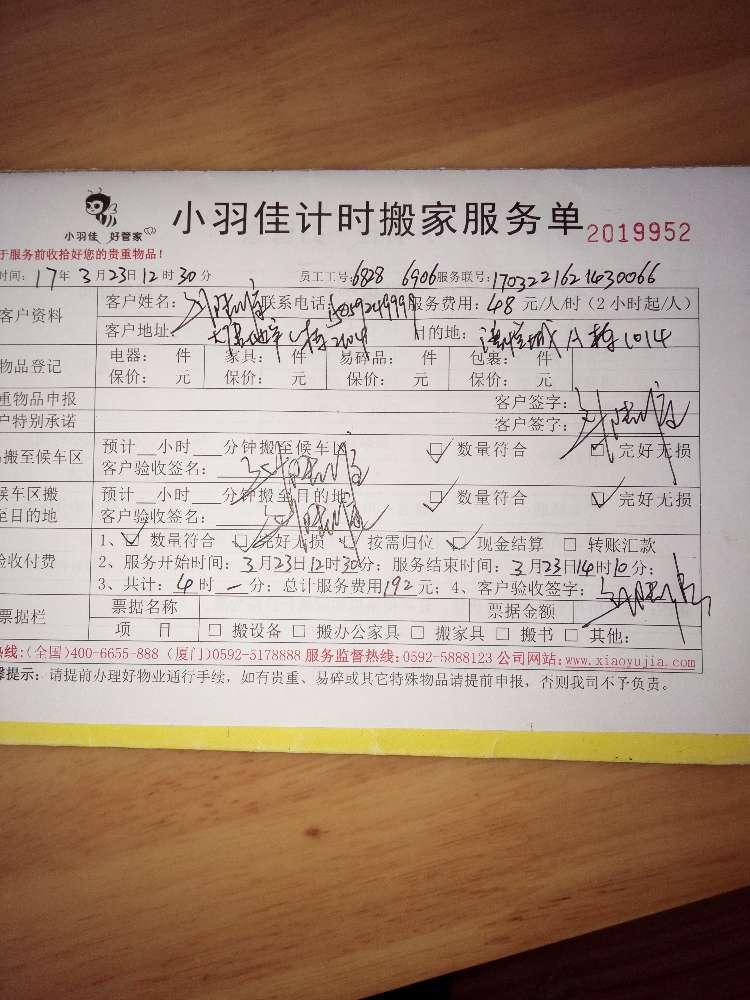 小羽佳 好管家
小羽佳计时搬家服务单 2019952
于服务前收拾好您的贵重物品！
时间：17年3月23日12时30分 员工工号：6828 6906 服务联号：1703221621430066
客户资料 客户姓名： 联系电话：15059249999 服务费用：48元/人/时（2小时起/人）
客户地址： 目的地： A栋1014
物品登记 电器： 件 家具： 件 易碎品： 件 包裹： 件
保价： 元 保价： 元 保价： 元 保价： 元
重物品申报 客户签字：
户特别承诺 客户签字：
搬至候车区 预计__小时___分钟搬至候车区 ☑ 数量符合 ☑ 完好无损
客户验收签名：
候车区搬至目的地 预计__小时___分钟搬至目的地 ☑ 数量符合 ☑ 完好无损
客户验收签名：
验收付费 1、☑ 数量符合 ☑ 完好无损 ☑ 按需归位 ☑ 现金结算 □ 转账汇款
2、服务开始时间：3月23日12时30分；服务结束时间：3月23日14时10分；
3、共计：4时一分；总计服务费用192元；4、客户验收签字：
票据栏 票据名称 票据金额
项 目 □ 搬设备 □ 搬办公家具 □ 搬家具 □ 搬书 □ 其他：
热线：(全国)400-6655-888 (厦门)0592-5178888 服务监督热线：0592-5888123 公司网站：www.xiaoyujia.com
馨提示：请提前办理好物业通行手续，如有贵重、易碎或其它特殊物品请提前申报，否则我司不予负责。